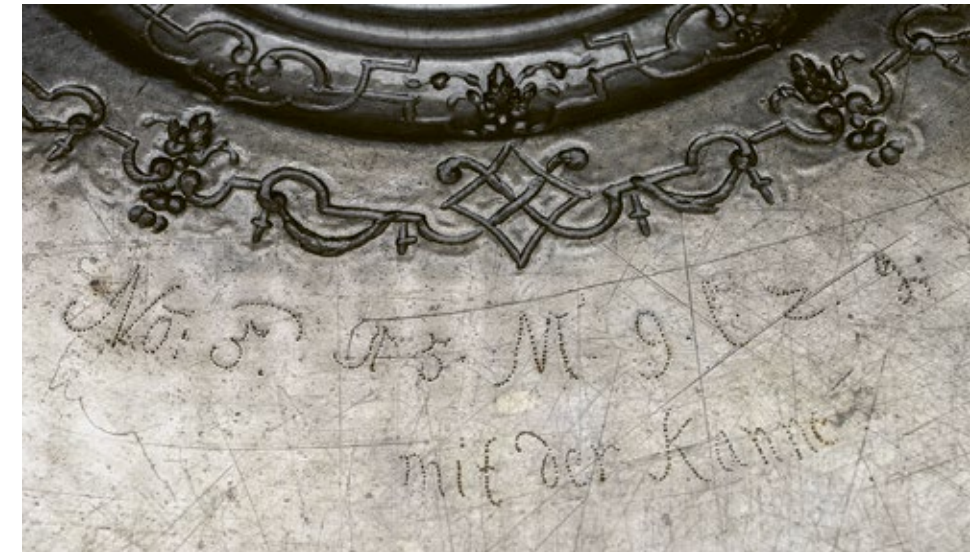 No: 3. 3. M 9 l 2.
mit der Kanne